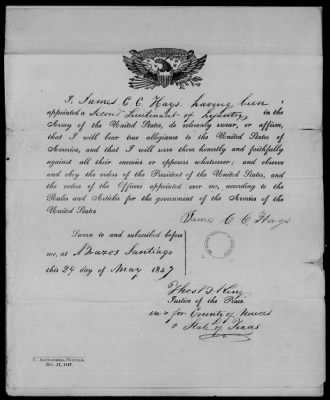 I, James C. C. Hays, having been
appointed a Second Lieutenant of Infantry in the
Army of the United States, do solemnly swear, or affirm,
that I will bear true allegiance to the United States of
America, and that I will serve them honestly and faithfully
against all their enemies or opposers whatsoever; and observe
and obey the orders of the President of the United States, and
the orders of the Officers appointed over me, according to the
Rules and Articles for the government of the Armies of the
United States
James C. C. Hays
Sworn to and subscribed before
me, at Brazos Santiago
this 29 day of May 1847
Thos B King
Justice of the Peace
in & for County of Nueces
& State of Texas
C. Alexander, Printer,